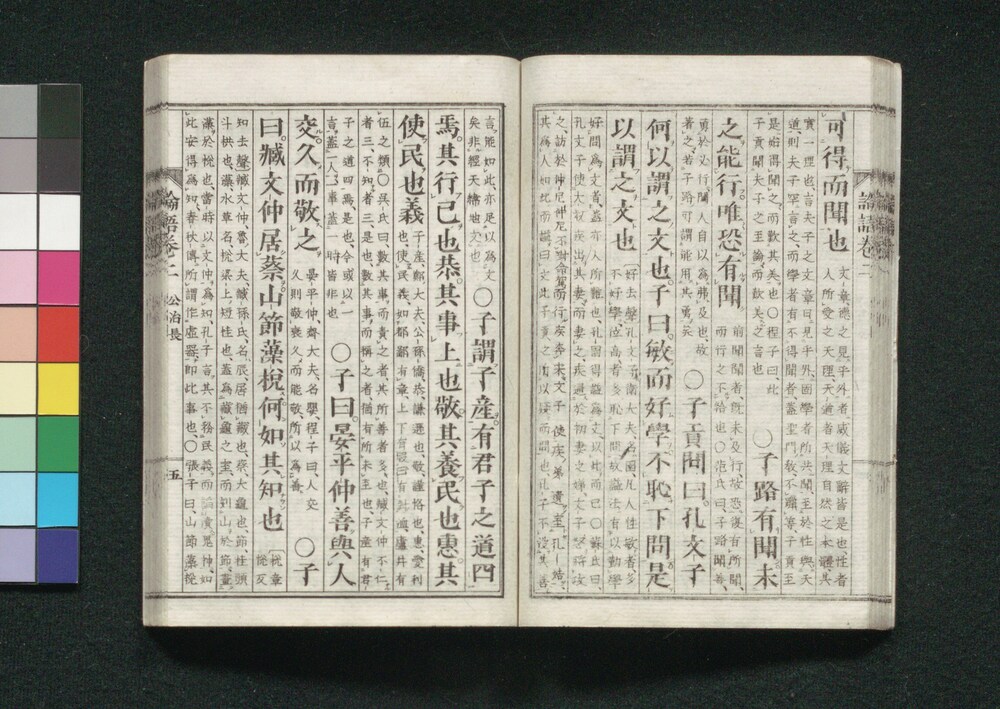 可得而聞也
文章德之見乎外者威儀文辭皆是也性者
人所受之天理天道者天理自然之本體其
實一理也言夫子之文章日見乎外固學者所共聞至於性與天
道則夫子罕言之而學者有不得聞者蓋聖門敎不躐等子貢至
是始得聞之而歎其美也○程子曰此
子貢聞夫子之至論而歎美之言也
○子路有聞未
之能行唯恐有聞
前所聞者既未及行故恐復有所聞
而行之不給也○范氏曰子路聞善
勇於必行門人自以爲弗及也故
著之若子路可謂能用其勇矣
○子貢問曰孔文子
何以謂之文也子曰敏而好學不恥下問是
以謂之文也
好去聲孔文子衛大夫名圉凡人性敏者多
不好學位高者多恥下問故謚法有以勤學
好問爲文者蓋亦人所難也孔圉得謚爲文以此而已○蘇氏曰
孔文子使太叔疾出其妻而妻之疾通於初妻之娣文子怒將攻
之訪於仲尼仲尼不對命駕而行疾奔宋文子使疾弟遺室孔姞
其爲人如此而謚曰文此子貢之所以疑而問也孔子不沒其善
言能如此亦足以爲文
矣非經天緯地之文也
○子謂子產有君子之道四
焉其行己也恭其事上也敬其養民也惠其
使民也義
子產鄭大夫公孫僑恭謙遜也敬謹恪也惠愛利
也使民義如都鄙有章上下有服田有封洫廬井有
伍之類○吳氏曰數其事而責之者其所善者多也臧文仲不仁
者三不知者三是也數其事而稱之者猶有所未至也子產有君
子之道四焉是也今或以一
言蓋一人一事蓋一時皆非也
○子曰晏平仲善與人
交久而敬之
晏平仲齊大夫名嬰程子曰人交
久則敬衰久而能敬所以爲善
○子
曰臧文仲居蔡山節藻梲何如其知也
梲章
悅反
知去聲臧文仲魯大夫臧孫氏名辰居猶藏也蔡大龜也節柱頭
斗栱也藻水草名梲梁上短柱也蓋爲藏龜之室而刻山於節畫
藻於梲也當時以文仲爲知孔子言其不務民義而諂瀆鬼神如
此安得爲知春秋傳所謂作虛器即此事也○張子曰山節藻梲
論語卷二
公冶長
五
論語卷二